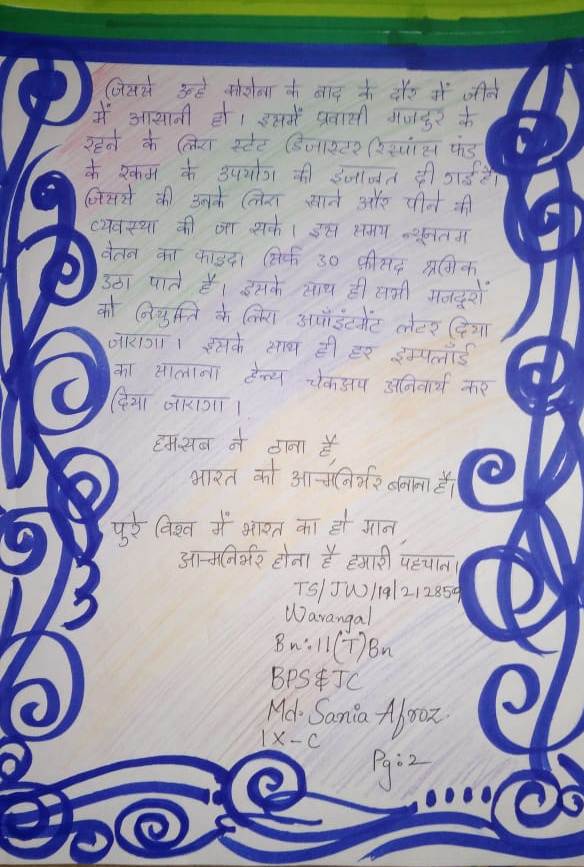 जिससे उन्हे कोरोना के बाद के दौर में जीने
में आसानी हो। इसमें प्रवासी मजदुर के
रहने के लिए स्टेट डिजास्टर रिस्पांस फंड
के रकम के उपयोग की इजाजत दी गई है।
जिससे की उनके लिए खाने और पीने की
व्यवस्था की जा सके। इस समय न्यूनतम
वेतन का फाइदा सिर्फ 30 फ़ीसद श्रमिक
उठा पाते है। इसके साथ ही सभी मजदूरों
को नियुक्ति के लिए अपॉइंटमेंट लेटर दिया
जाएगा। इसके साथ ही हर इम्पलॉई
का सालाना हेल्थ चेकअप अनिवार्य कर
दिया जाएगा।
हमसब ने ठाना है,
भारत को आत्मनिर्भर बनाना है।
पुरे विश्व में भारत का हो मान,
आत्मनिर्भर होना है हमारी पहचान।
TS/JW/19/212859
Warangal
Bn:11(T)Bn
BPS&JC
Md. Sania Afroz.
IX-C
Pg:2